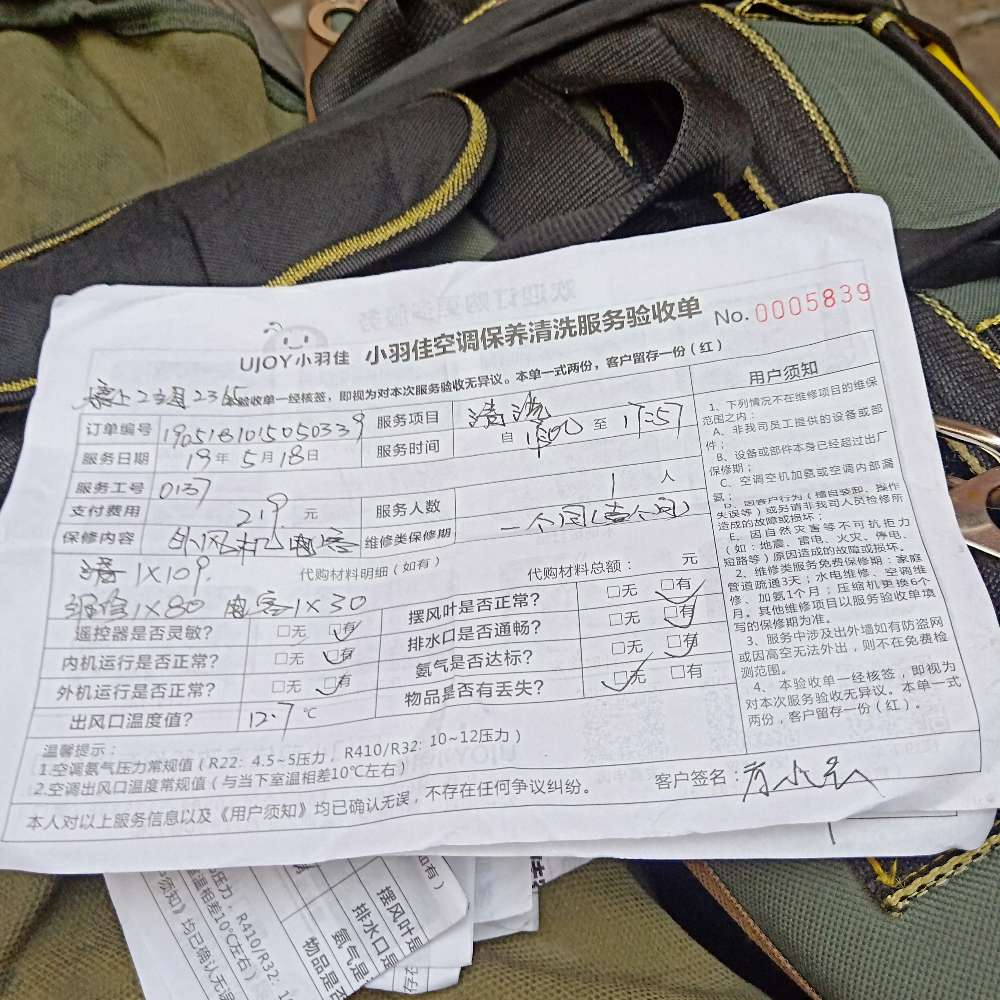 欢迎订购更多服务
UJOY小羽佳 小羽佳空调保养清洗服务验收单 No.0005839
本验收单一经核签，即视为对本次服务验收无异议。本单一式两份，客户留存一份（红）
订单编号 190518101505033 9 服务项目 清洗
服务日期 19年5月18日 服务时间 自 至 17:57
服务工号 0137
支付费用 219元 服务人数 1人
保修内容 外风机电容 维修类保修期 一个月
清1X109. 代购材料明细（如有） 代购材料总额： 元
维修1X80 电容1X30
遥控器是否灵敏？ □无 □有 摆风叶是否正常？ □无 □有
内机运行是否正常？ □无 □有 排水口是否通畅？ □无 □有
外机运行是否正常？ □无 □有 氨气是否达标？ □无 □有
出风口温度值？ 12.7℃ 物品是否有丢失？ □无 □有
温馨提示：
1.空调氨气压力常规值（R22: 4.5~5压力，R410/R32: 10~12压力）
2.空调出风口温度常规值（与当下室温相差10℃左右）
本人对以上服务信息以及《用户须知》均已确认无误，不存在任何争议纠纷。 客户签名：
用户须知
1、下列情况不在维修项目的维保
范围之内：
A、非我司员工提供的设备或部
件；
B、设备或部件本身已经超过出厂
保修期；
C、空调空机加氨或空调内部漏
氨；
D、因客户行为（擅自装卸、操作
失误等）或另请非我司人员检修所
造成的故障或损坏；
E、因自然灾害等不可抗拒力
（如：地震、雷电、火灾、停电、
短路等）原因造成的故障或损坏。
2、维修类服务免费保修期：家庭
管道疏通3天；水电维修、空调维
修、加氨1个月；压缩机更换6个
月。其他维修项目以服务验收单填
写的保修期为准。
3、服务中涉及出外墙如有防盗网
或因高空无法外出，则不在免费检
测范围。
4、本验收单一经核签，即视为
对本次服务验收无异议。本单一式
两份，客户留存一份（红）。
压力，R410/R32: 1
温相差10℃左右）
须知》均已确认无误
如有）
摆风叶是
排水口是
氨气是
物品是否